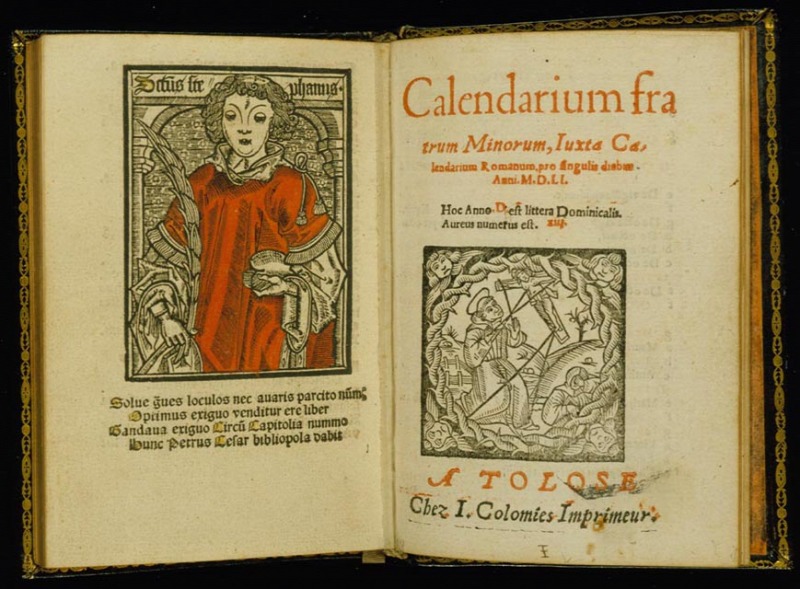 Sctūs ste phanus.
Solue q̄ues loculos nec avaris parcito nūm̄
Optimus exiguo venditur ere liber
Gandaua exiguo Circū Capitolia nummo
Hunc Petrus Cesar bibliopola dabit
Calendarium fra
trum Minorum, Iuxta Ca-
lendarium Romanum, pro singulis diebus.
Anni. M. D. LI.
Hoc Anno D. est littera Dominicalis.
Aureus numerus est.
A TOLOSE
Chez I. Colomies Imprimeur.